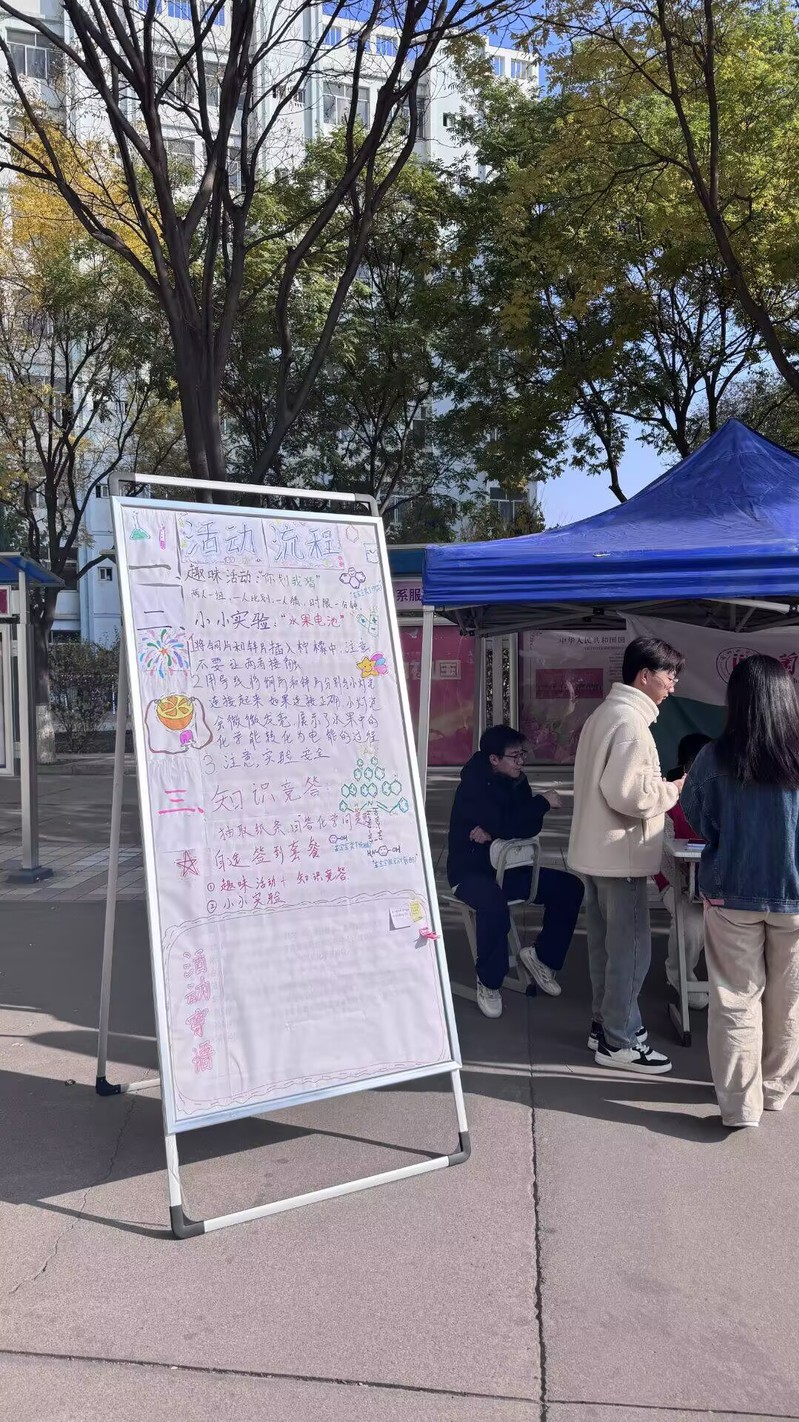 活动流程
一、趣味活动："你划我猜"
两人一组，一人比划，一人猜，时限一分钟
二、小小实验："水果电池"
1.将铜片和锌片插入柠檬中，注意
不要让两者接触
2.用导线将铜片和锌片分别与小灯泡
连接起来，如果连接正确，小灯泡
会微微发亮，展示了水果中的
化学能转化为电能的过程
3.注意实验安全
三、知识竞答
抽取纸条回答化学问题
自选签到套餐
①趣味活动+知识竞答
②小小实验
活动寄语
系服
中华人民共和国